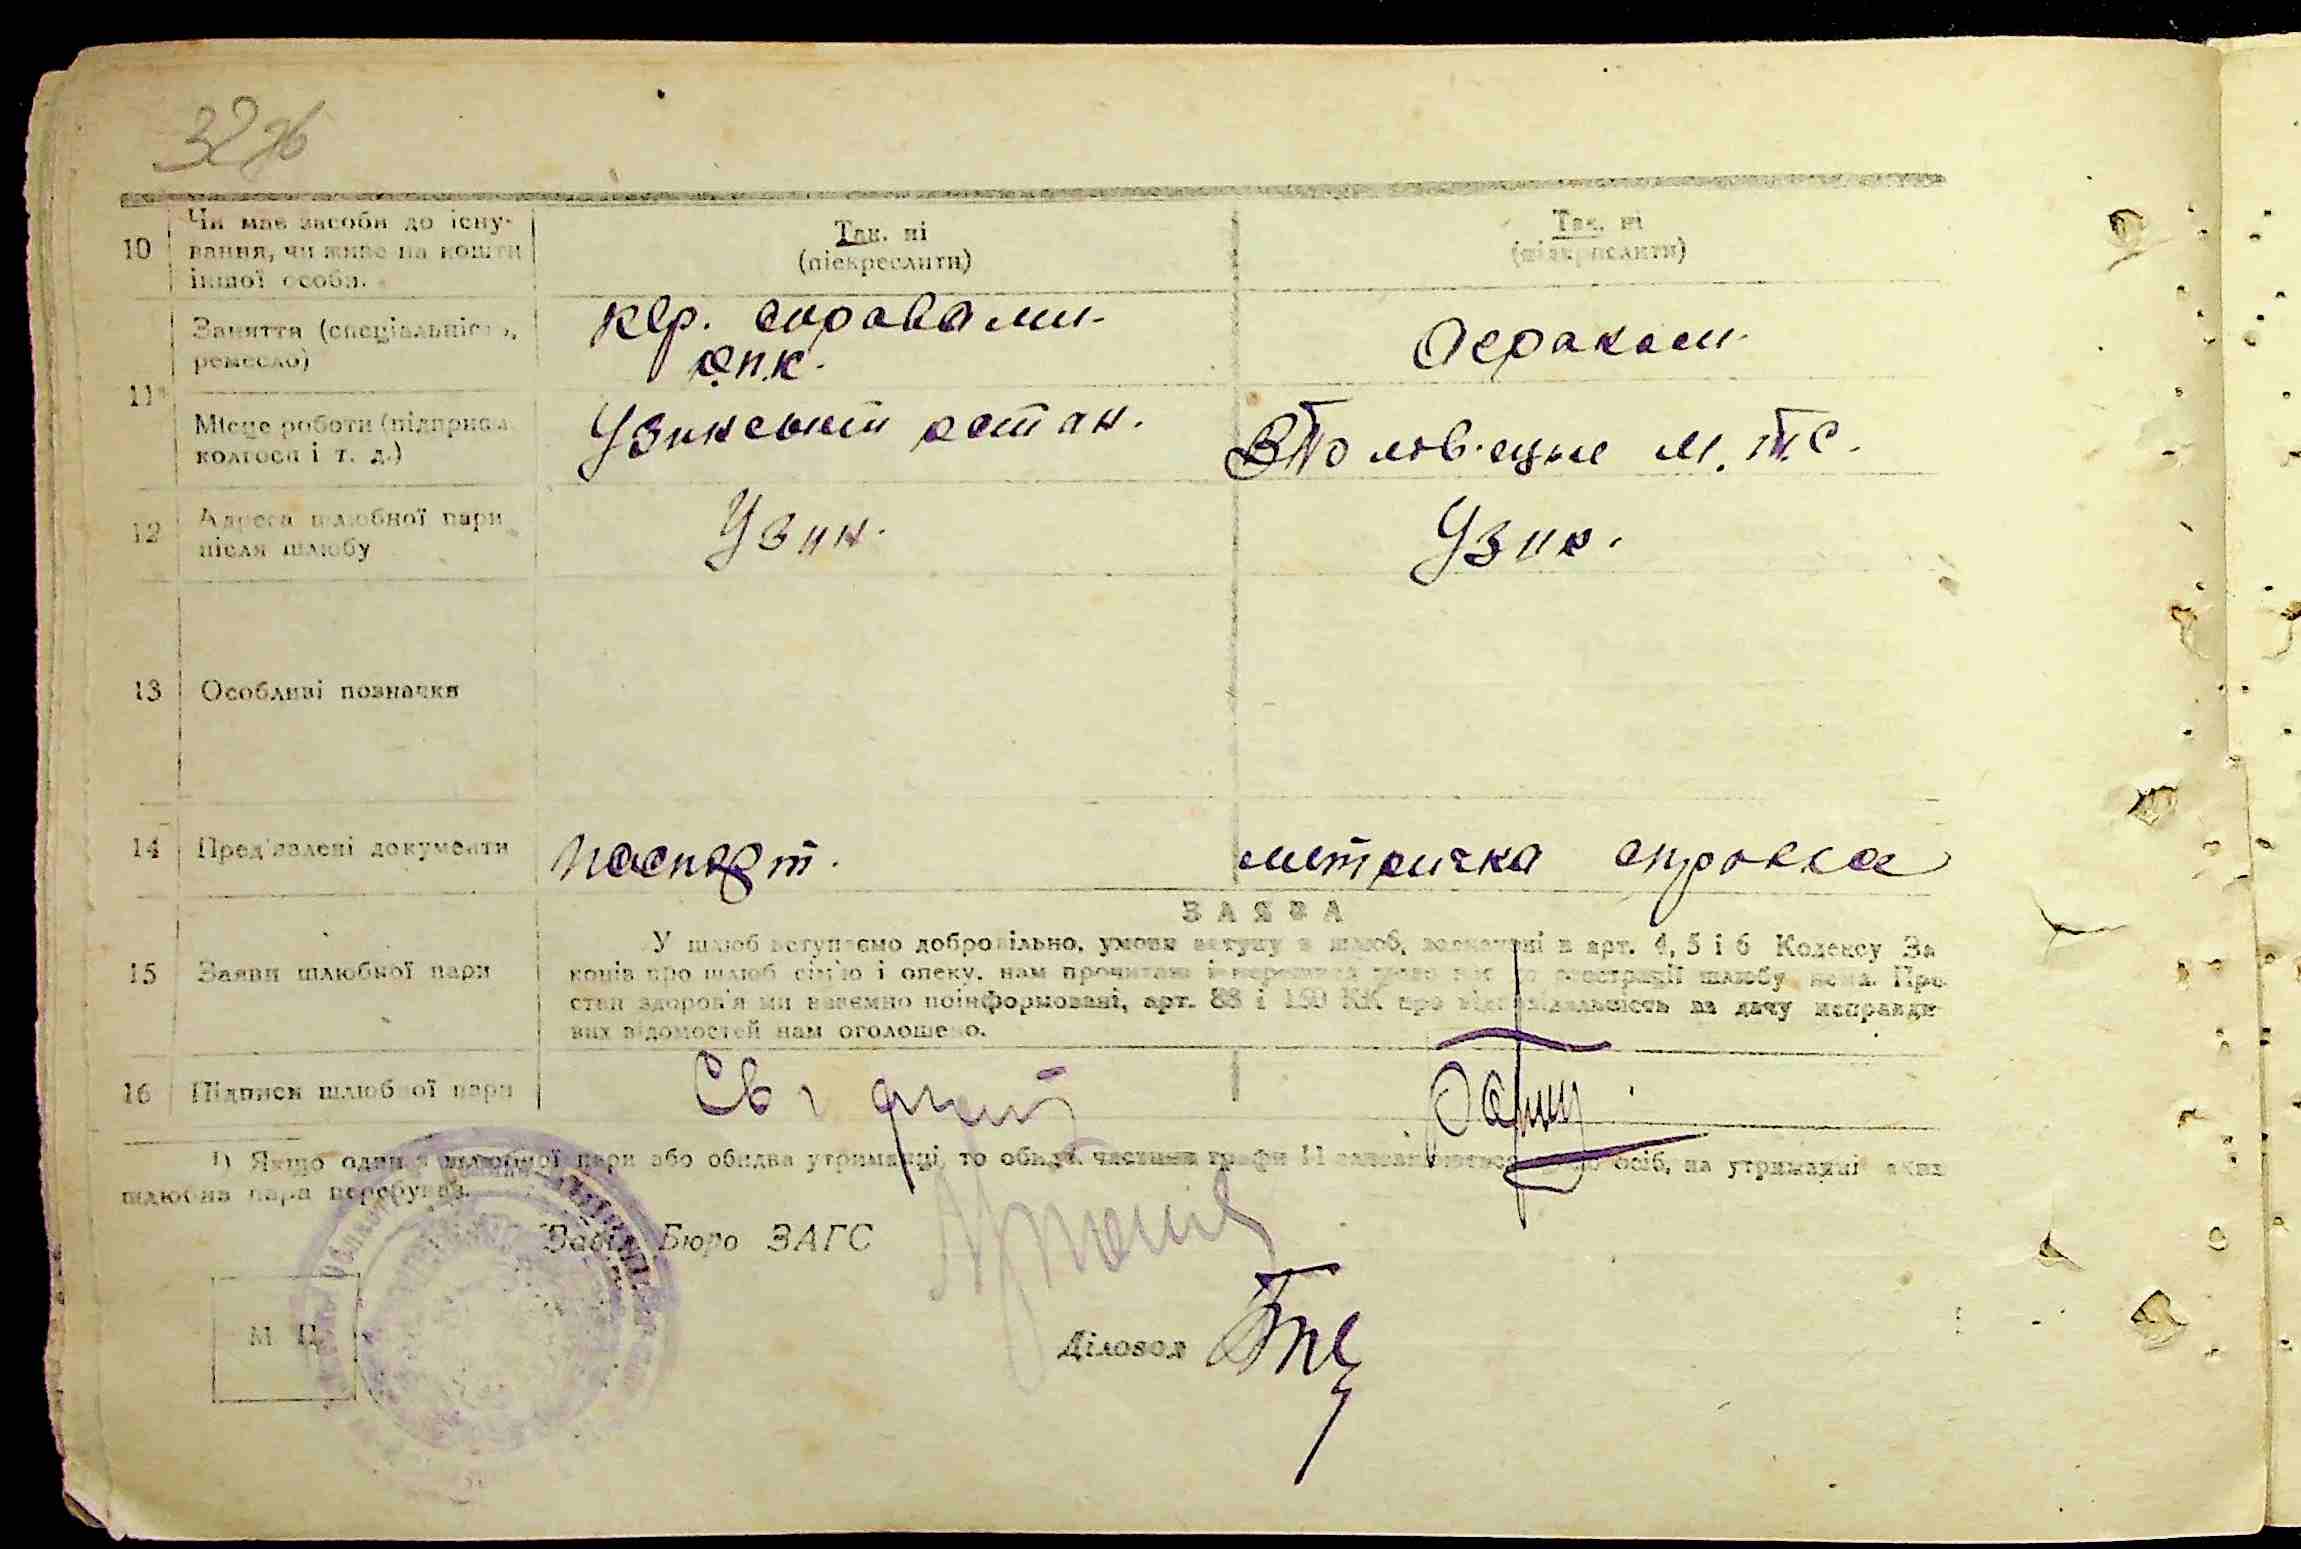 32зв
10 Чи має засоби до існу-
вання, чи живе на кошти
іншої особи.
Так. ні
(піскреслити)
Так. ні
(підкреслити)
11 Заняття (спеціальність,
ремесло)
кер. справами
Місце роботи (підприєм.
колгосп і т. д.)
Узинський
М.Т.С.
12 Адреса шлюбної пари
після шлюбу
Узин.
Узин.
13 Особливі позначки
14 Пред'явлені документи
паспорт.
метрична справка
ЗАЯВА
15 Заяви шлюбної пари
У шлюб вступаємо добровільно, умови вступу в шлюб, зазначені в арт. 4, 5 і 6 Кодексу За
конів про шлюб сім'ю і опеку, нам прочитані і реєстрації шлюбу нема. Про
стан здоров'я ми взаємно поінформовані, арт. 88 і 150 КК про відповідальність за дачу неправди
вих відомостей нам оголошено.
16 Підписи шлюбної пари
1) Якщо один з шлюбної пари або обидва утриманці, то обидві частини графи 11 осіб, на утриманні яких
шлюбна пара перебуває.
Завід. Бюро ЗАГС
М П
Діловод